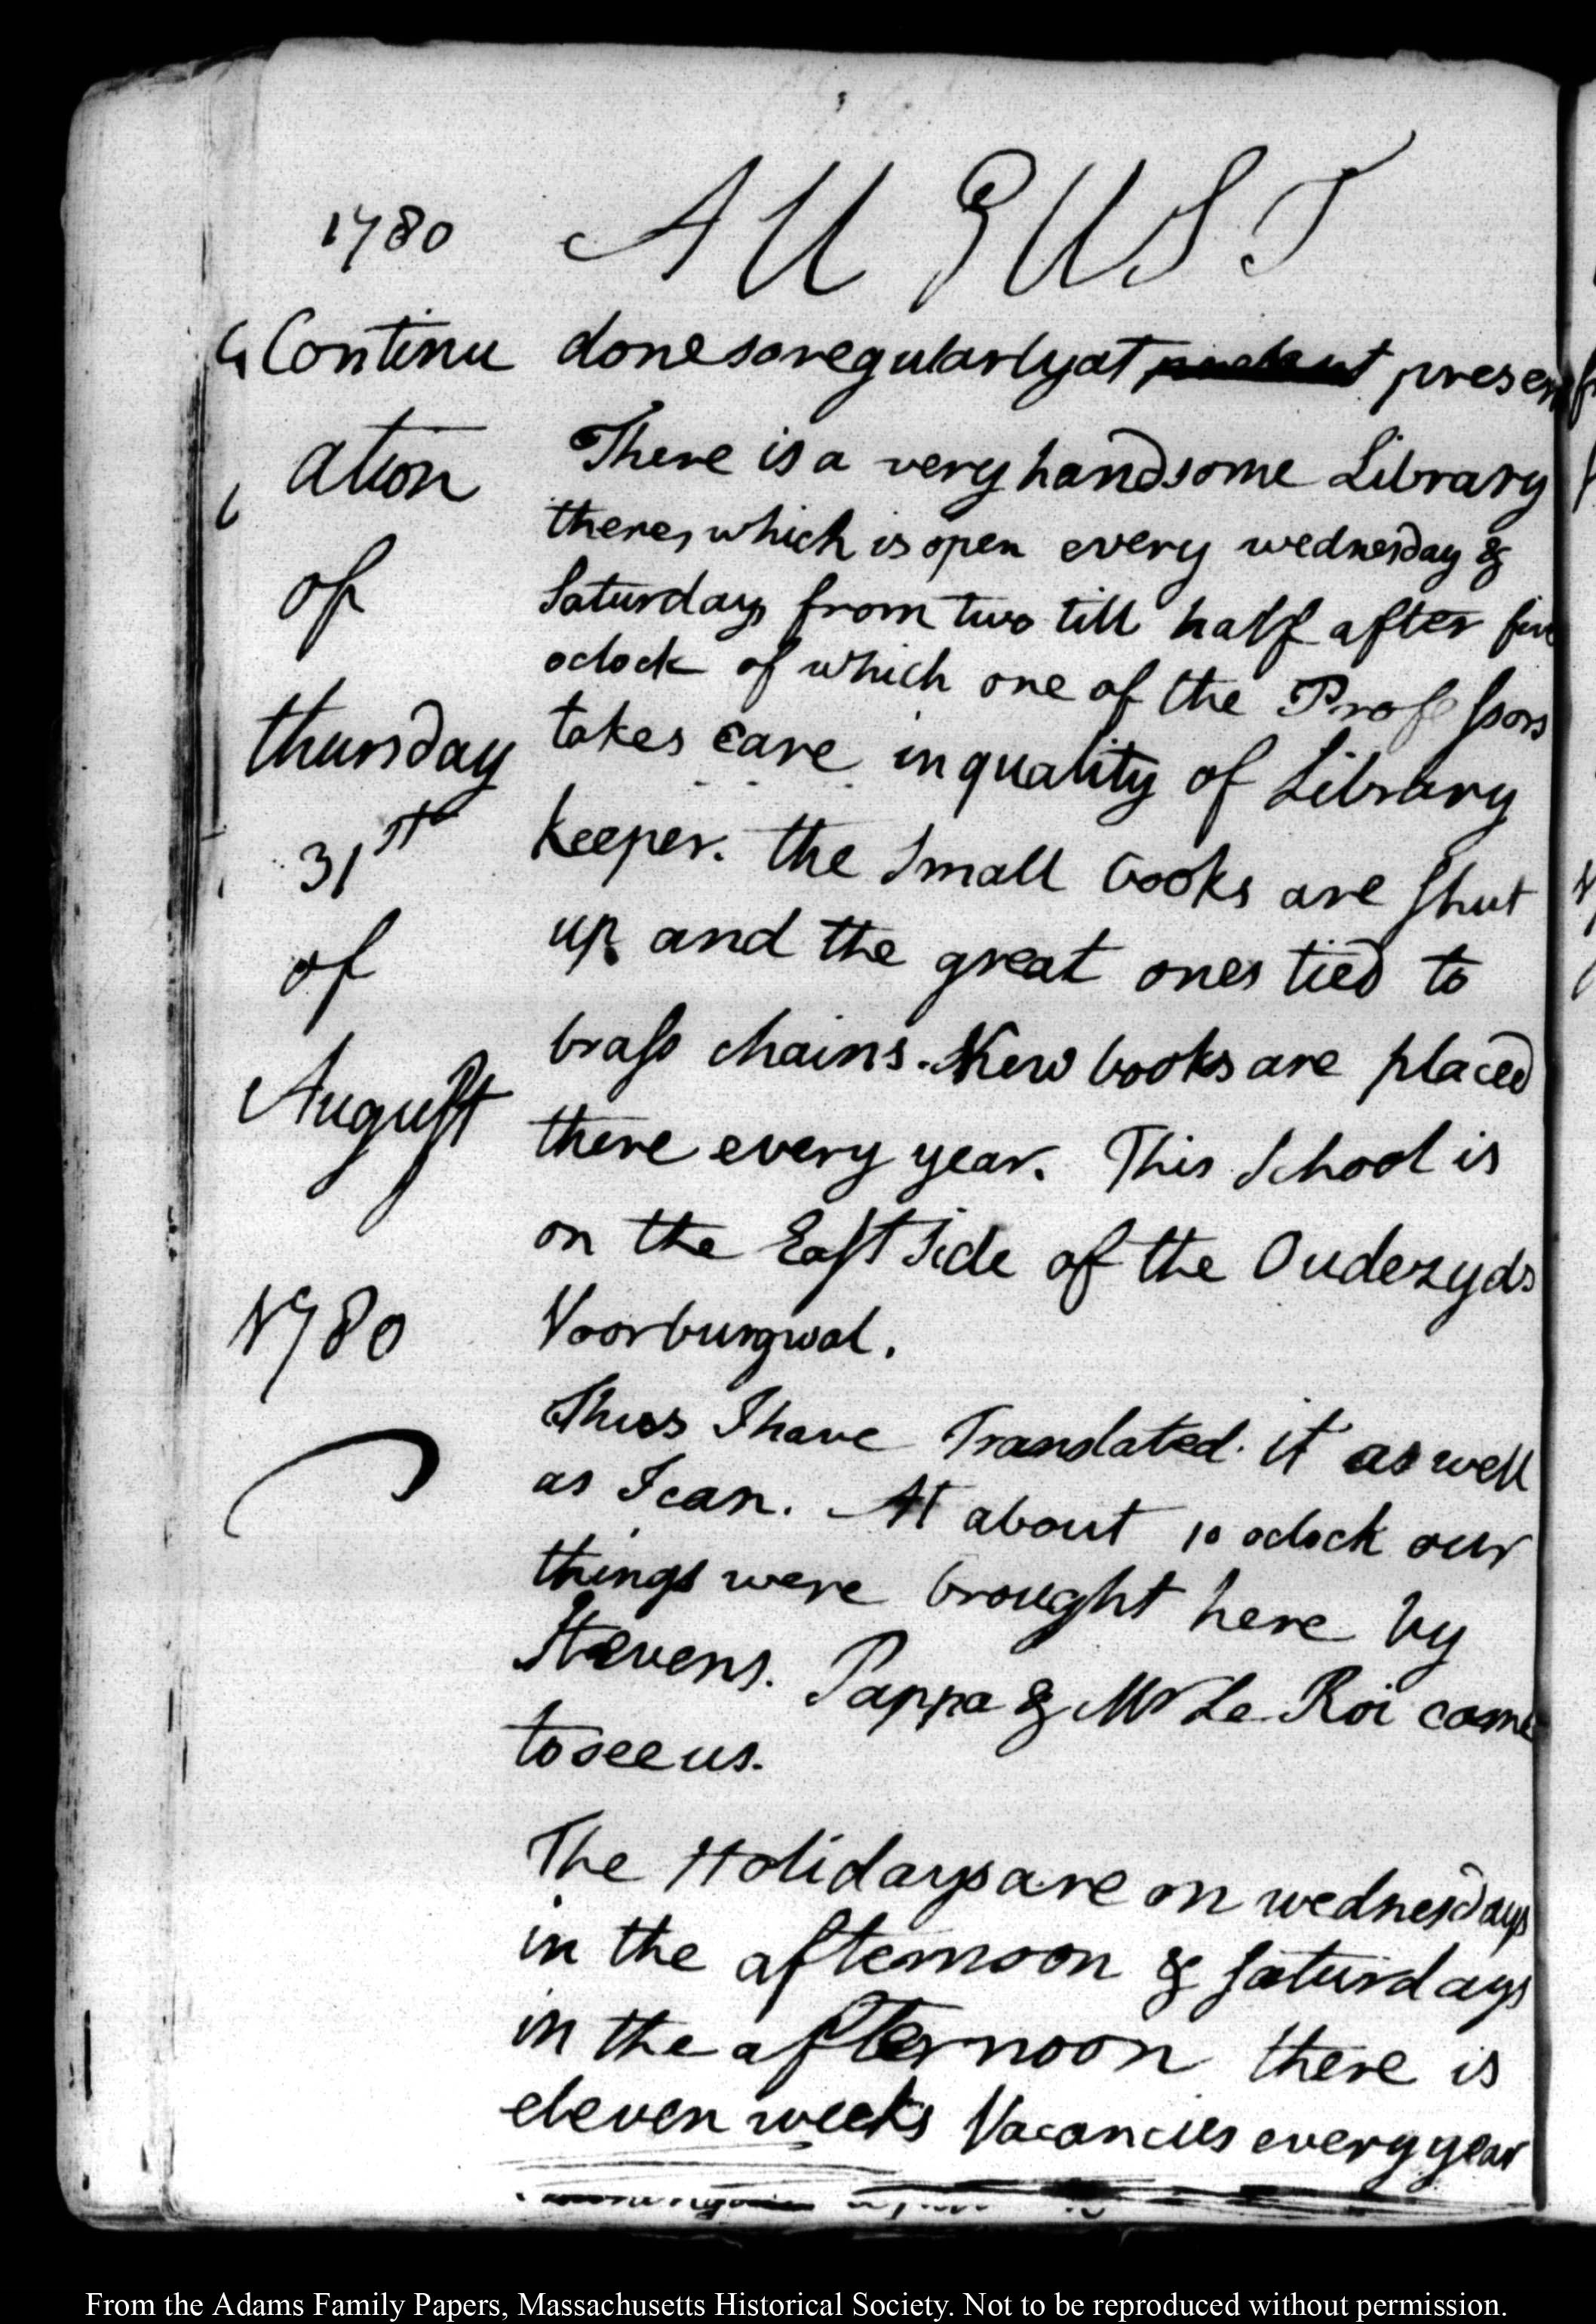 1780 AUGUST
Continu done so regularly at present
ation There is a very handsome Library
there, which is open every wednesday &
of Saturday from two till half after five
oclock of which one of the Professors
thursday takes care in quality of Library
31st keeper. the Small books are Shut
of up and the great ones tied to
brass chains. New books are placed
August there every year. This School is
on the East Side of the Oudezyds
1780 Voorburgwal.
Thus I have Translated it as well
as I can. At about 10 oclock our
things were brought here by
Stevens. Pappa & Mr Le Roi came
to see us.
The Holidays are on wednesdays
in the afternoon & Saturdays
in the afternoon there is
eleven weeks Vacancies every year
From the Adams Family Papers, Massachusetts Historical Society. Not to be reproduced without permission.